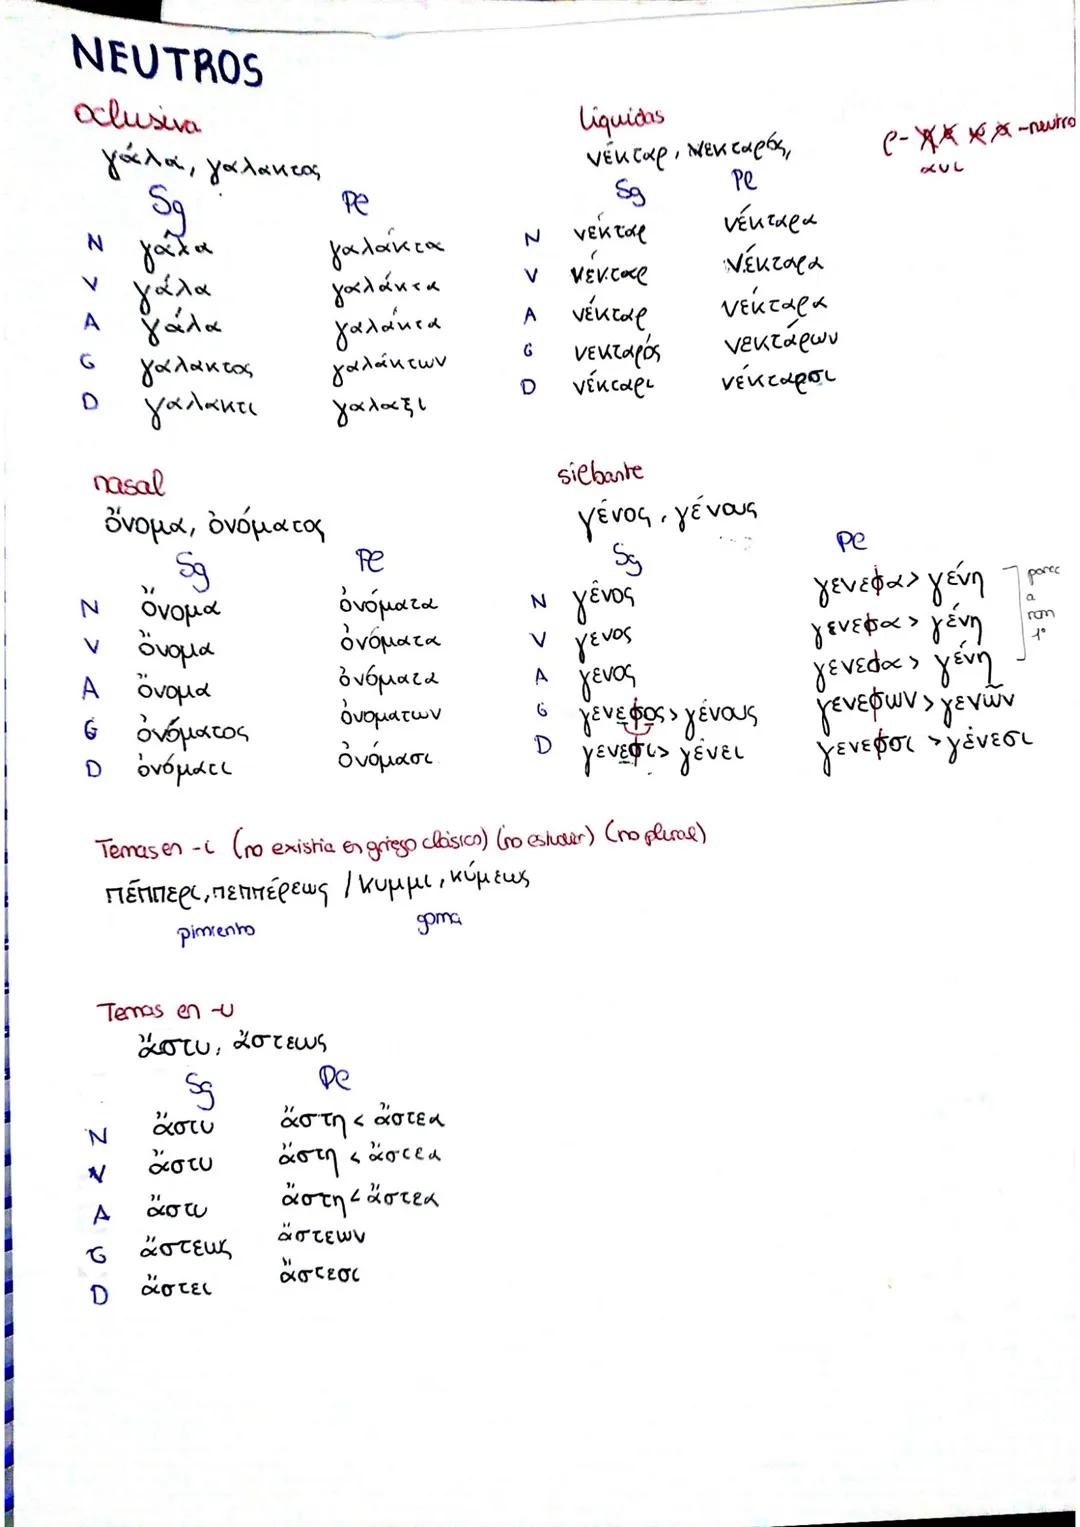 NEUTROS
oclusiva
γάλα, γαλακτος
Sg Pl
N γάλα γαλάκτα
V γάλα γαλάκτα
A γάλα γαλάκτα
G γαλακτος γαλάκτων
D γαλακτι γαλαξι
líquidas
νέκταρ, νεκταρός,
ρ- -neutro
αυι
Sg Pl
N νέκταρ νέκταρα
V νέκταρ νέκταρα
A νέκταρ νέκταρα
G νεκταρός νεκτάρων
D νέκταρι νέκταρσι
nasal
ὄνομα, ὀνόματος
Sg Pl
N ὄνομα ὀνόματα
V ὄνομα ὀνόματα
A ὄνομα ὀνόματα
G ὀνόματος ὀνοματων
D ὀνόματι ὀνόμασι
silbante
γένος, γένους
Sg Pl
N γένος γενεσα > γένη
V γενος γενεσα > γένη
A γενος γενεσα > γένη
parec
a
rom
1º
G γενεσος > γένους γενεσων > γενῶν
D γενεσι > γένει γενεσσι > γένεσι
Temas en -ι (no existía en griego clásico) (no estudiar) (no plural)
πέππερι, πεππέρεως / κυμμι, κύμεως
pimiento goma
Temas en -υ
ἄστυ, ἄστεως
Sg Pl
N ἄστυ ἄστη < ἄστεα
V ἄστυ ἄστη < ἄστεα
A ἄστυ ἄστη < ἄστεα
G ἄστεως ἄστεων
D ἄστει ἄστεσι